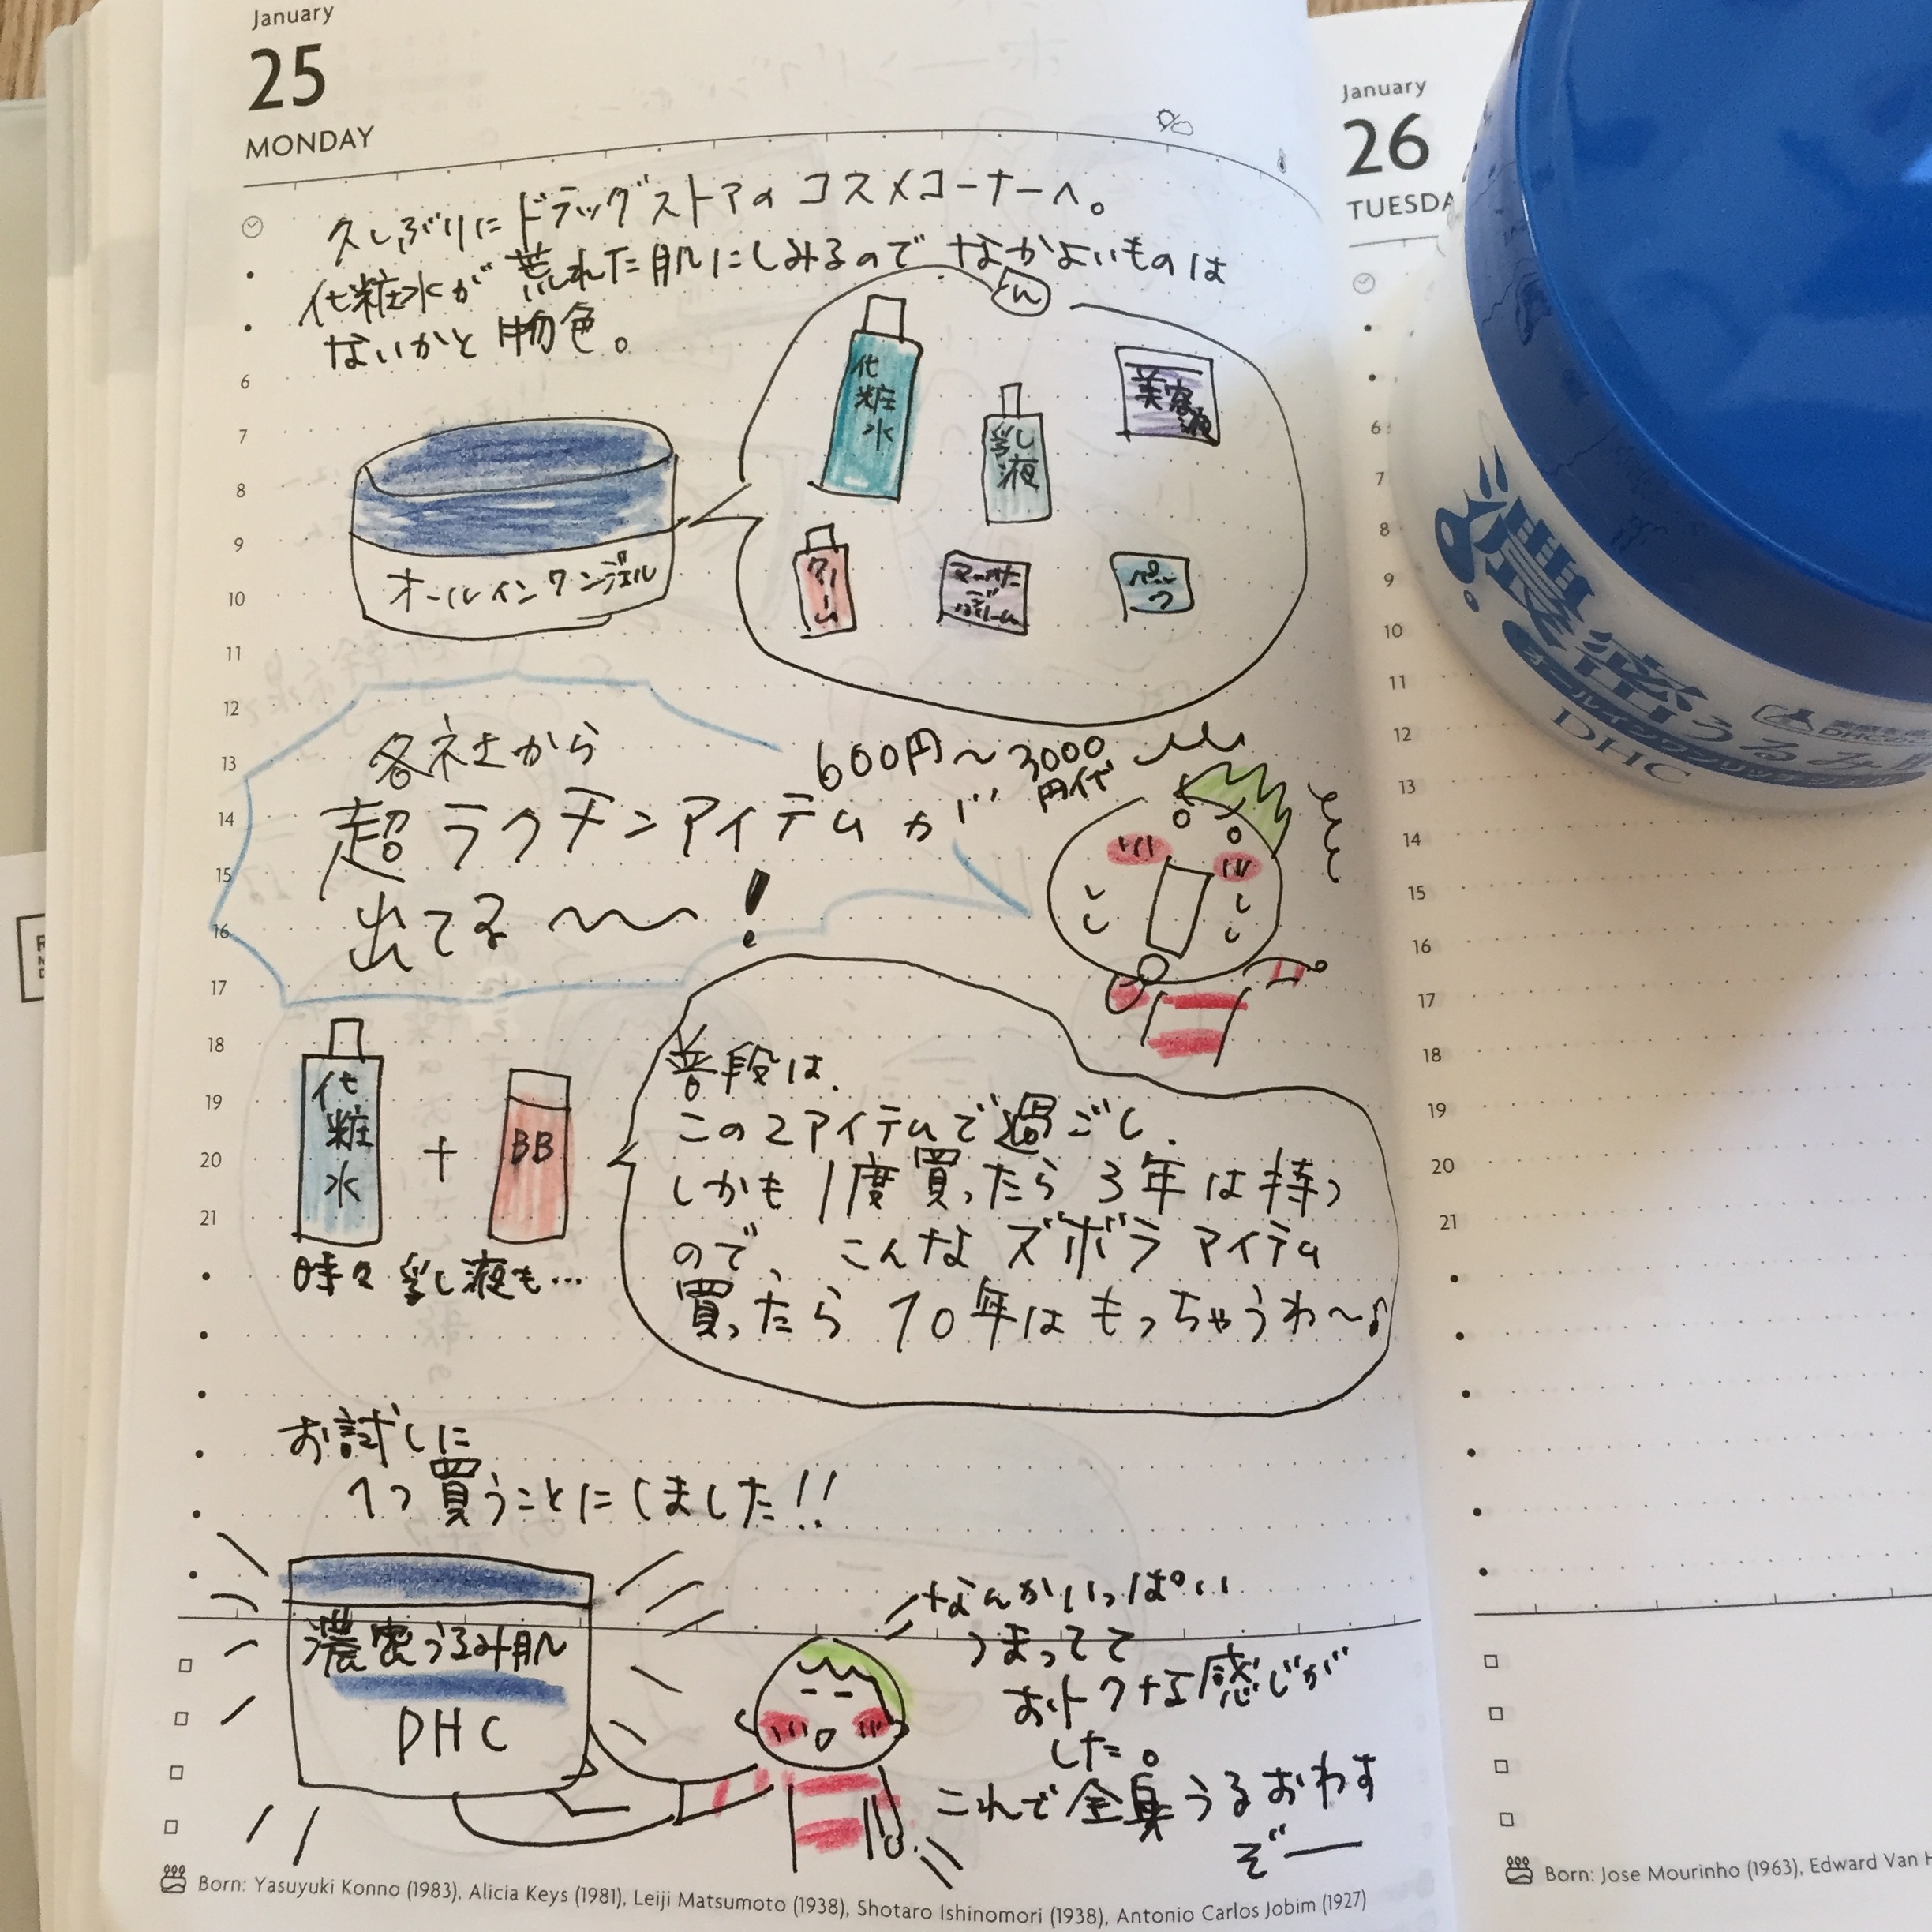 January
25
MONDAY
久しぶりにドラッグストアのコスメコーナーへ。
化粧水が荒れた肌にしみるので なかよいものは
ん
ないかと物色。
化粧水
乳液
美容液
オールインワンジェル
クリーム
パック
各社から
600円〜3000円代
超ラクチンアイテムが
出てる〜〜!
化粧水
+
BB
時々乳液も…
普段は、
この2アイテムで過ごし、
しかも1度買ったら3年は持つ
ので、こんなズボラアイテム
買ったら10年はもっちゃうわ〜♪
お試しに
1つ買うことにしました!!
濃密うるみ肌
DHC
なんかいっぱい
つまってて
おトクな感じが
した。
これで全身うるおわす
ぞー
6
7
8
9
10
11
12
13
14
15
16
17
18
19
20
21
Born: Yasuyuki Konno (1983), Alicia Keys (1981), Leiji Matsumoto (1938), Shotaro Ishinomori (1938), Antonio Carlos Jobim (1927)
January
26
TUESDA
6
7
8
9
10
11
12
13
14
15
16
17
18
19
20
21
Born: Jose Mourinho (1963), Edward Van H
濃密うるみ肌
オールインワン
DHC
DHC